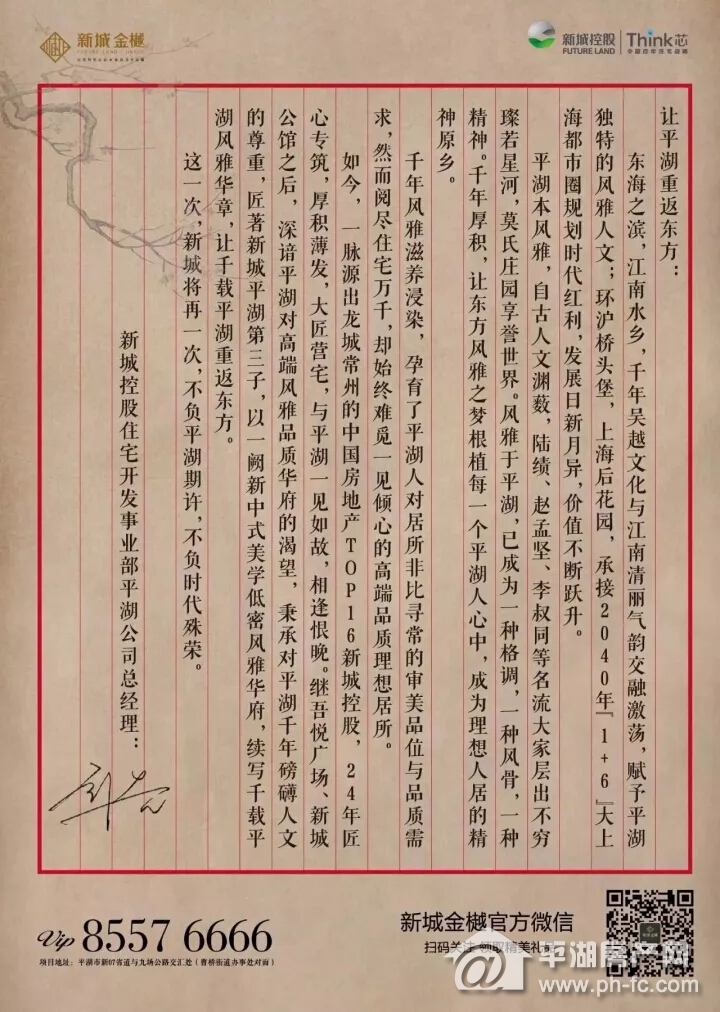 新城金樾
FUTURE LAND
新城控股
FUTURE LAND
Think芯
中国百年住宅战略
让平湖重返东方：
东海之滨，江南水乡，千年吴越文化与江南清丽气韵交融激荡，赋予平湖
独特的风雅人文；环沪桥头堡，上海后花园，承接2040年『1+6』大上
海都市圈规划时代红利，发展日新月异，价值不断跃升。
平湖本风雅，自古人文渊薮，陆绩、赵孟坚、李叔同等名流大家层出不穷
璨若星河，莫氏庄园享誉世界。风雅于平湖，已成为一种格调，一种风骨，一种
精神。千年厚积，让东方风雅之梦根植每一个平湖人心中，成为理想人居的精
神原乡。
千年风雅滋养浸染，孕育了平湖人对居所非比寻常的审美品位与品质需
求，然而阅尽住宅万千，却始终难觅一见倾心的高端品质理想居所。
如今，一脉源出龙城常州的中国房地产TOP16新城控股，24年匠
心专筑，厚积薄发，大匠营宅，与平湖一见如故，相逢恨晚。继吾悦广场、新城
公馆之后，深谙平湖对高端风雅品质华府的渴望，秉承对平湖千年磅礴人文
的尊重，匠著新城平湖第三子，以一阙新中式美学低密风雅华府，续写千载平
湖风雅华章，让千载平湖重返东方。
这一次，新城将再一次，不负平湖期许，不负时代殊荣。
新城控股住宅开发事业部平湖公司总经理：
Vip 8557 6666
项目地址：平湖市新07省道与九场公路交汇处（曹桥街道办事处对面）
新城金樾官方微信
扫码关注 领取精美礼
平湖房产网
www.ph-fc.com